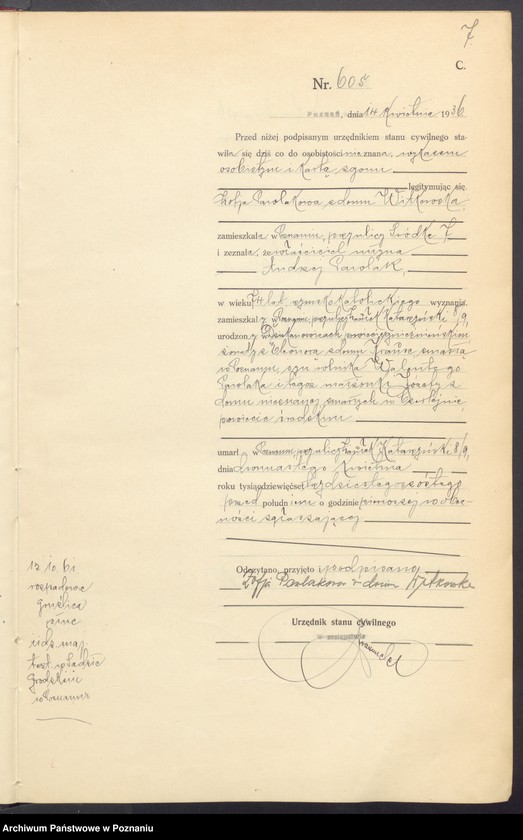 7
C.
Nr. 605
Poznań, dnia 14 Kwietnia 1936
Przed niżej podpisanym urzędnikiem stanu cywilnego sta-
wiła się dziś co do osobistości nieznana, wykazem
osobistym i kartą zgonu
legitymując się
Zofja Pawlakowa z domu Witkowska
zamieszkała w Poznaniu, przy ulicy Śródka 7
i zeznała, że właściciel
Andrzej Pawlak,
w wieku 74 lat, rzymsko katolickiego wyznania
zamieszkał w Poznaniu, przy ulicy Zaułek Katarzyński 8/9,
urodzon w
żonaty z Eleonorą z domu zmarłą
w Poznaniu, syn rolnika Walentego
Pawlaka i tegoż małżonki Józefy z
domu nieznanej, zmarłych w
powiecie średzkim
umarł w Poznaniu, przy ulicy Zaułek Katarzyński 8/9,
dnia dwunastego Kwietnia
roku tysiącdziewięćset trzydziestego szóstego
przed południem o godzinie pierwszej w obec-
ności zgłaszającej
Odczytano, przyjęto i podpisano
Zofja Pawlakowa z domu Witkowska
Urzędnik stanu cywilnego
w zastępstwie
12. 10. 61
w Poznaniu
Archiwum Państwowe w Poznaniu